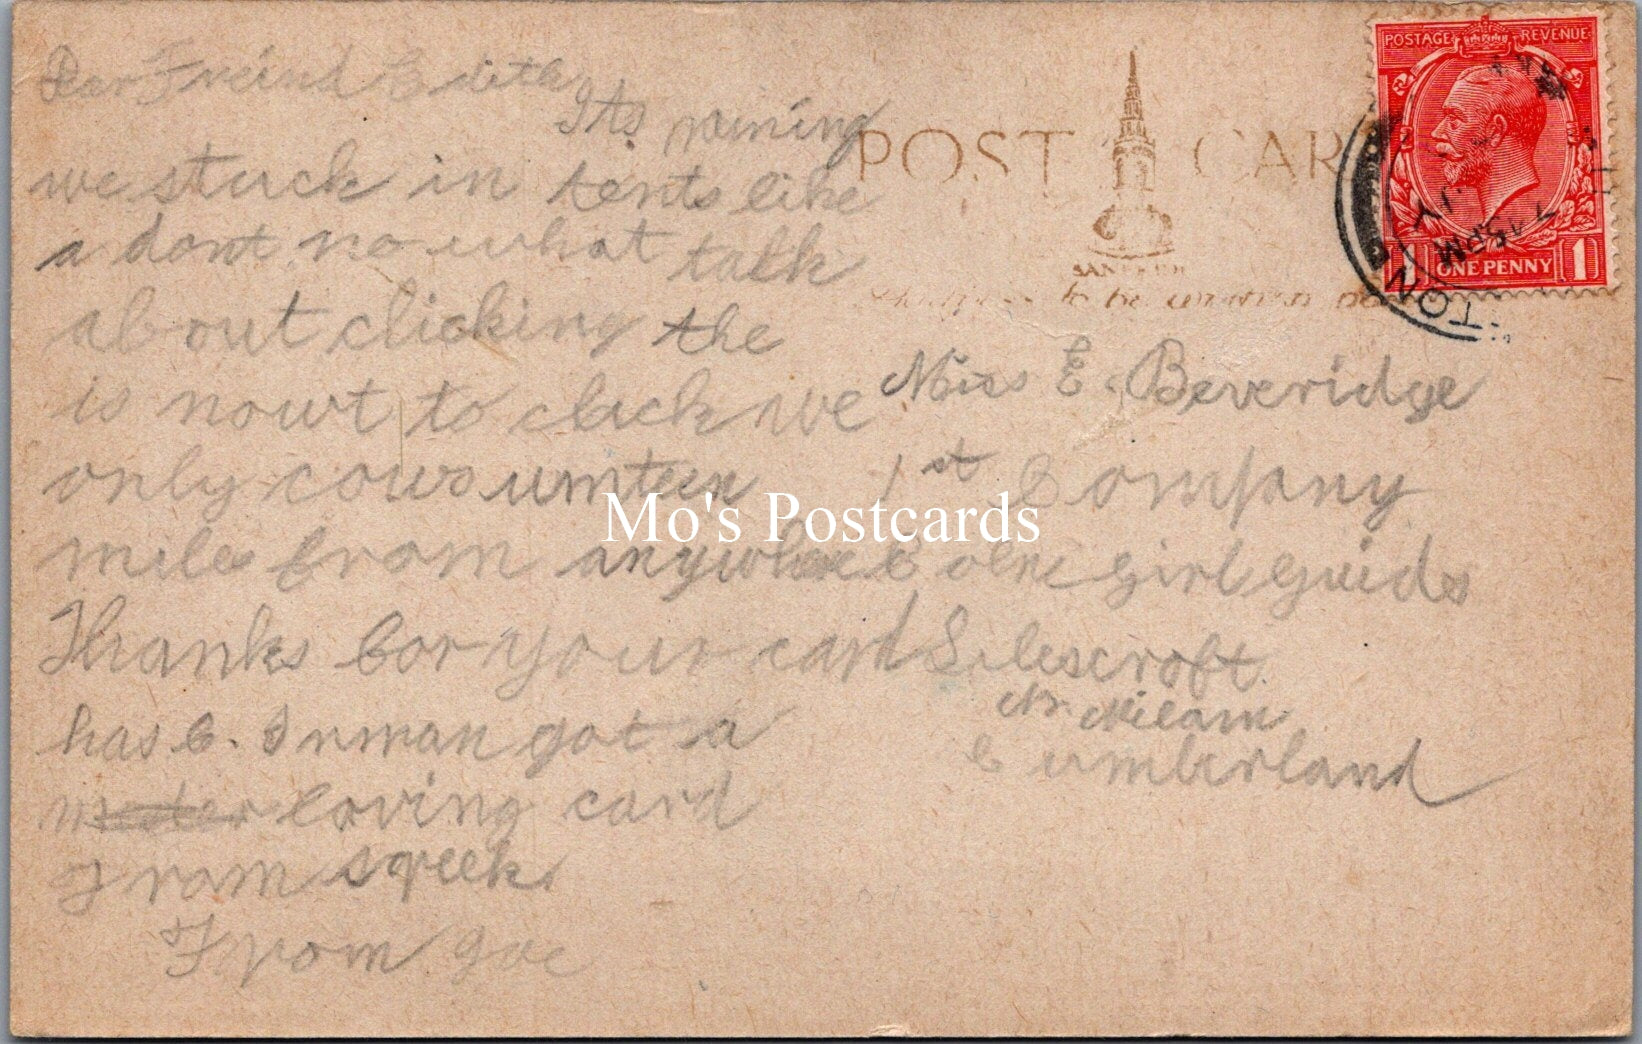 Dear Freind Edith
Its raining
we stuck in tents like
a dont no what talk
about clicking the
is nowt to click we
only cows umteen
miles from anywhere
Thanks for your card
has C. Inman got a
loving card
From squeek
From Joe
POST CARD
Miss E. Beveridge
1st Company
Colne Girl Guids
Silescroft
Nr. Milam
Cumberland
POSTAGE REVENUE
ONE PENNY 1
Mo's Postcards